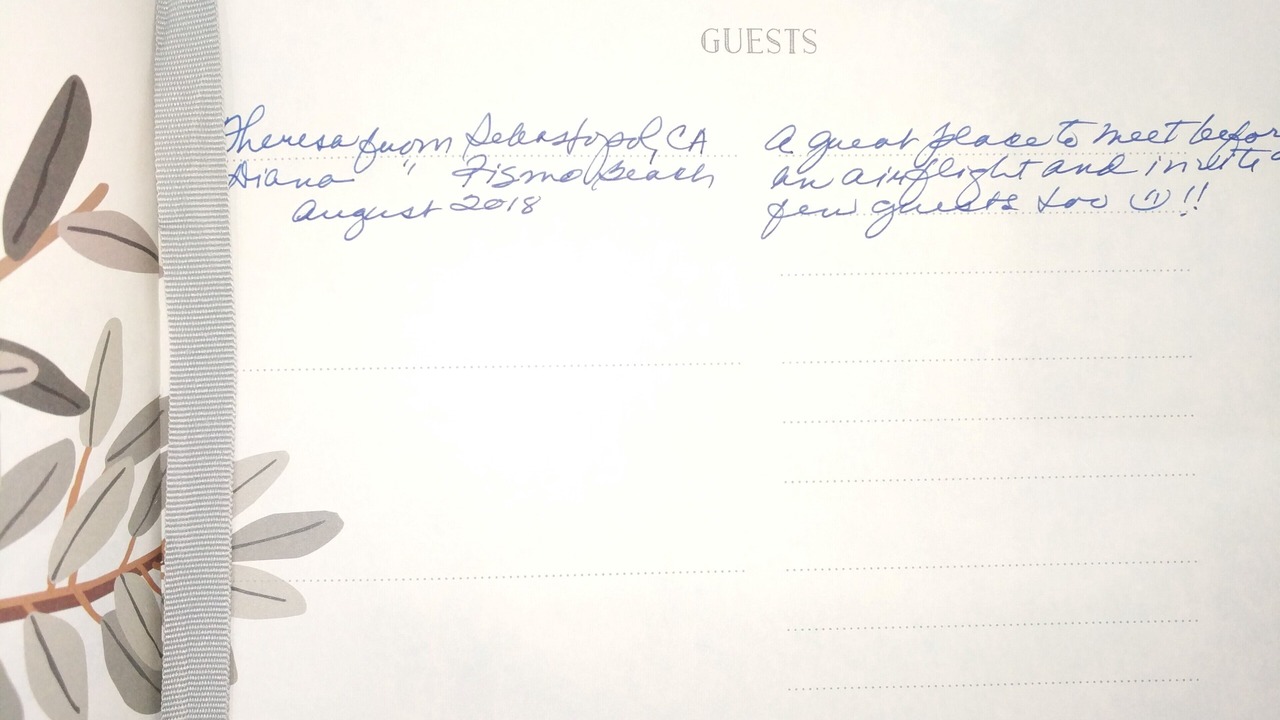 GUESTS
Theresa from Sebastopol, CA
Diana " Pismo Beach
August 2018
A great place to meet befor
an airflight and invite a
few guests too !!